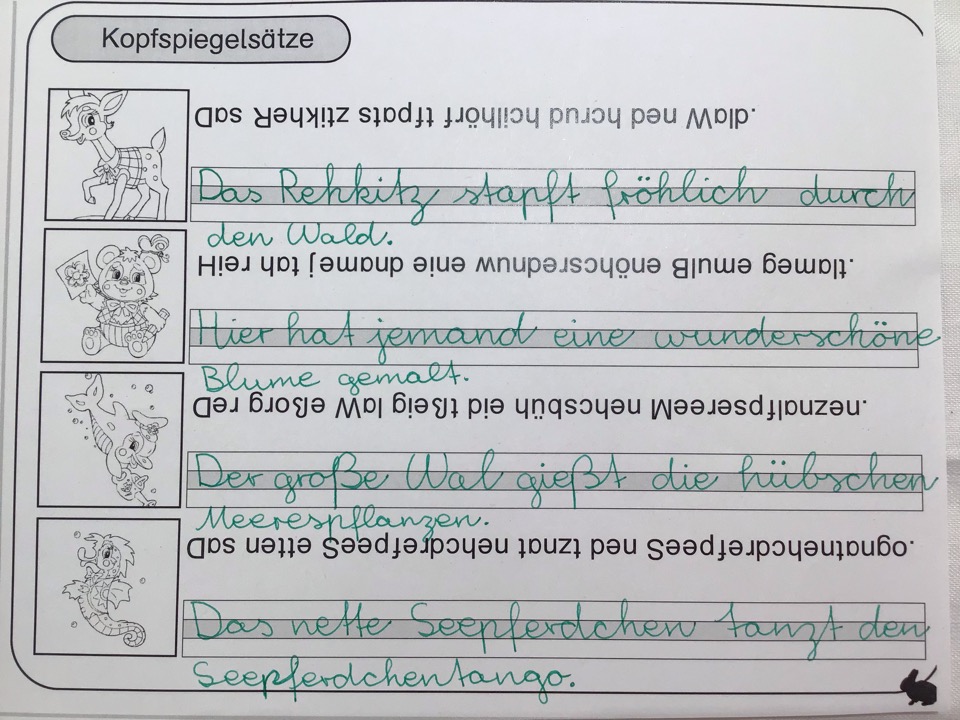 Kopfspiegelsätze
Das Rehkitz stapft fröhlich durch den Wald.
Das Rehkitz stapft fröhlich durch
den Wald.
Hier hat jemand eine wunderschöne Blume gemalt.
Hier hat jemand eine wunderschöne
Blume gemalt.
Der große Wal gießt die hübschen Meerespflanzen.
Der große Wal gießt die hübschen
Meerespflanzen.
Das nette Seepferdchen tanzt den Seepferdchentango.
Das nette Seepferdchen tanzt den
Seepferdchentango.